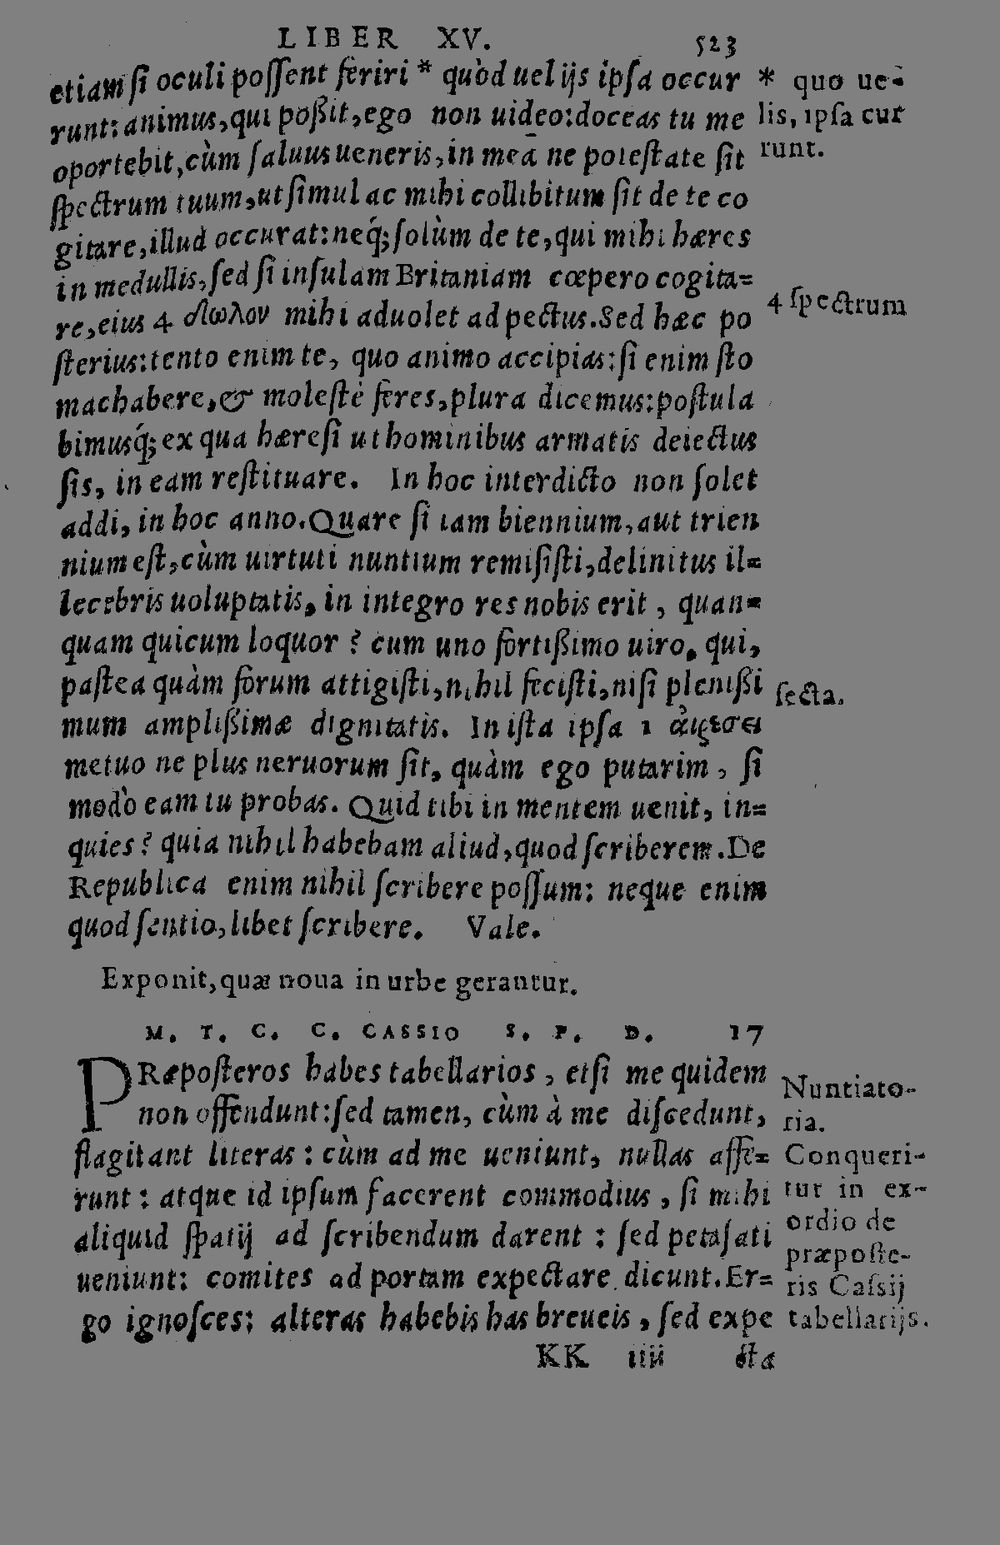 LIBER XV. 523
etiam si oculi possent feriri * quòd uel ijs ipsa occur
runt: animus, qui poßit, ego non uideo: doceas tu me
oportebit, cùm saluus ueneris, in mea ne potestate sit
spectrum tuum, ut simul ac mihi collibitum sit de te co
gitare, illud occurat: neq́; solùm de te, qui mihi hæres
in medullis, sed si insulam Britaniam cœpero cogita=
re, eius 4 mihi aduolet ad pectus. Sed hæc po
sterius: tento enim te, quo animo accipias: si enim sto
machabere, & molestè feres, plura dicemus: postula
bimusq́; ex qua hæresi ut hominibus armatis deiectus
sis, in eam restituare. In hoc interdicto non solet
addi, in hoc anno. Quare si iam biennium, aut trien
nium est, cùm uirtuti nuntium remisisti, delinitus il=
lecebris uoluptatis, in integro res nobis erit, quan=
quam quicum loquor? cum uno fortißimo uiro, qui,
pastea quàm forum attigisti, nihil fecisti, nisi plenißi
mum amplißimæ dignitatis. In ista ipsa 1 αἱρέσει
metuo ne plus neruorum sit, quàm ego putarim, si
modò eam tu probas. Quid tibi in mentem uenit, in=
quies? quia nihil habebam aliud, quod scriberem. De
Republica enim nihil scribere possum: neque enim
quod sentio, libet scribere. Vale.
* quo ue-
lis, ipsa cur
runt.
4 spectrum
secta.
Exponit, quæ noua in urbe gerantur.
M. T. C. C. CASSIO S. P. D. 17
PRæposteros habes tabellarios, etsi me quidem
non offendunt: sed tamen, cùm à me discedunt,
flagitant literas: cùm ad me ueniunt, nullas affe=
runt: atque id ipsum facerent commodius, si mihi
aliquid spatij ad scribendum darent: sed petasati
ueniunt: comites ad portam expectare dicunt. Er=
go ignosces: alteras habebis has breueis, sed expe
Nuntiato-
ria.
Conqueri-
tur in ex-
ordio de
præposte-
ris Cassij
tabellarijs.
KK iiij cta